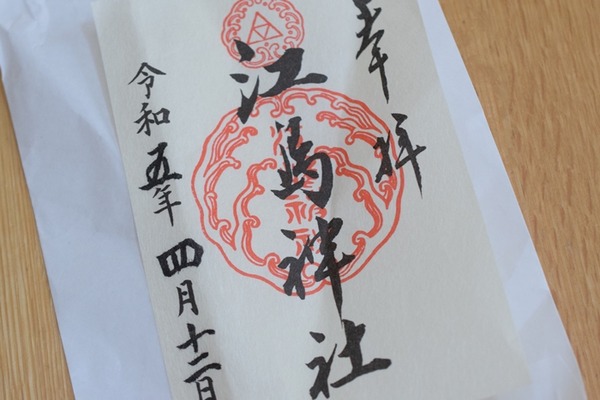 奉拝
江島神社
令和五年四月十二日